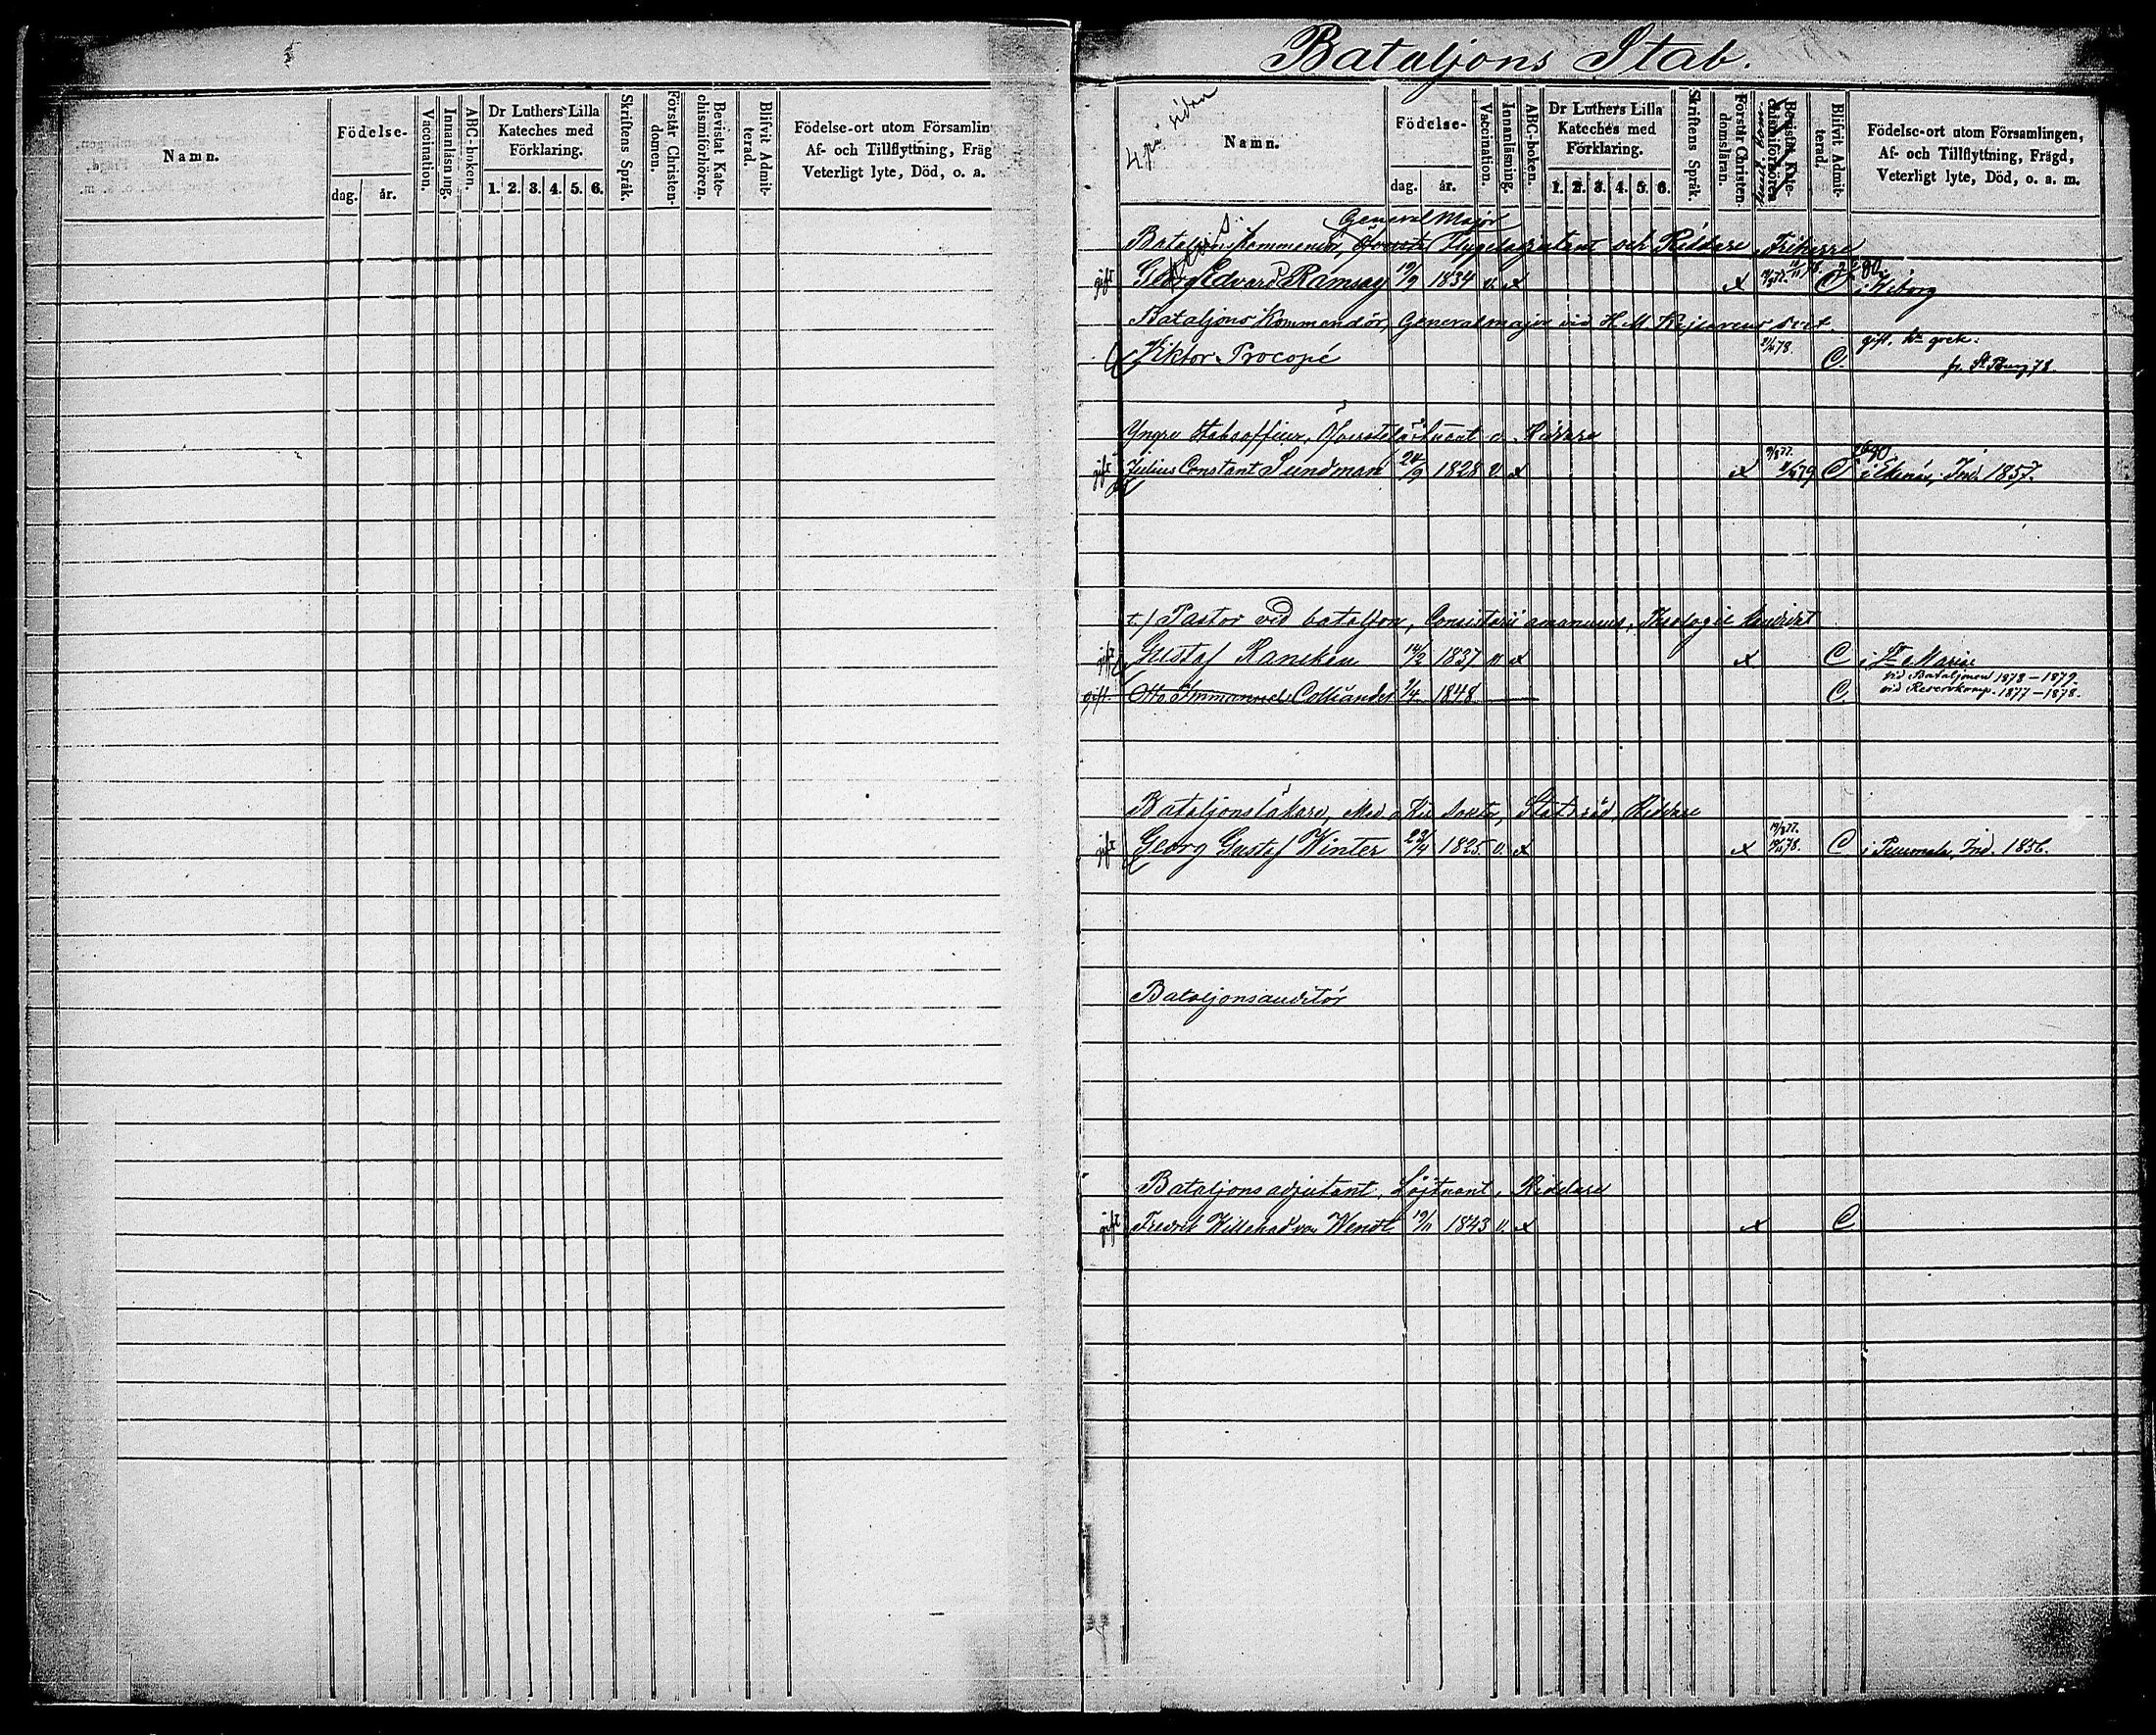 Namn.
Födelse-
dag. år.
Vaccination.
Innanläsning.
ABC-boken.
Dr Luthers Lilla
Kateches med
Förklaring.
1. 2. 3. 4. 5. 6.
Skriftens Språk.
Förstår Christen-
domen.
Bevistat Kate-
chismiförhören.
Blifvit Admit-
terad.
Födelse-ort utom Församlin
Af- och Tillflyttning, Fräg
Veterligt lyte, Död, o. a.
Bataljons Stab.
4 på sidan
Namn.
Födelse-
dag. år.
Vaccination.
Innanläsning.
ABC-boken.
Dr Luthers Lilla
Kateches med
Förklaring.
1. 2. 3. 4. 5. 6.
Skriftens Språk.
Förstår Christen-
domsläran.
Bevistat Kate-
chismiförhören
Blifvit Admit-
terad.
Födelse-ort utom Församlingen,
Af- och Tillflyttning, Frägd,
Veterligt lyte, Död, o. a. m.
General Major
Bataljons Kommendör, Öfverste, Flygeladjutant och Riddare, Friherre
gift Georg Edvard Ramsay 19/9 1834 v. x x C i Wiborg
Bataljons Kommendör, Generalmajor vid H. M. Kejsarens svit
Viktor Procopé 2/4 78. C. gift. m grek.
fr. St Pburg 78.
Yngre Stabsofficer, Öfverstelöjtnant o. Riddare
gift Julius Constant Sundman 24/9 1828 v. x x C i Ekenäs, Ind. 1857.
t. f. Pastor vid bataljon, Consistorii amanuens, Theologie Kandidat
gift Gustaf Rancken 14/2 1837 v x x C i St Marie
vid Bataljonen 1878-1879.
gift Otto Immanuel Colliander 2/4 1848 C. vid Reservkomp. 1877-1878.
Bataljonsläkare, Med o Kir Doktor, Statsråd, Riddare
gift Georg Gustaf Winter 23/4 1825. v. x x C. i Pernå Ind. 1856.
Bataljonsauditör
Bataljonsadjutant, Löjtnant, Riddare
gift Fredrik Willehad von Wendt. 19/11 1843 v. x x C